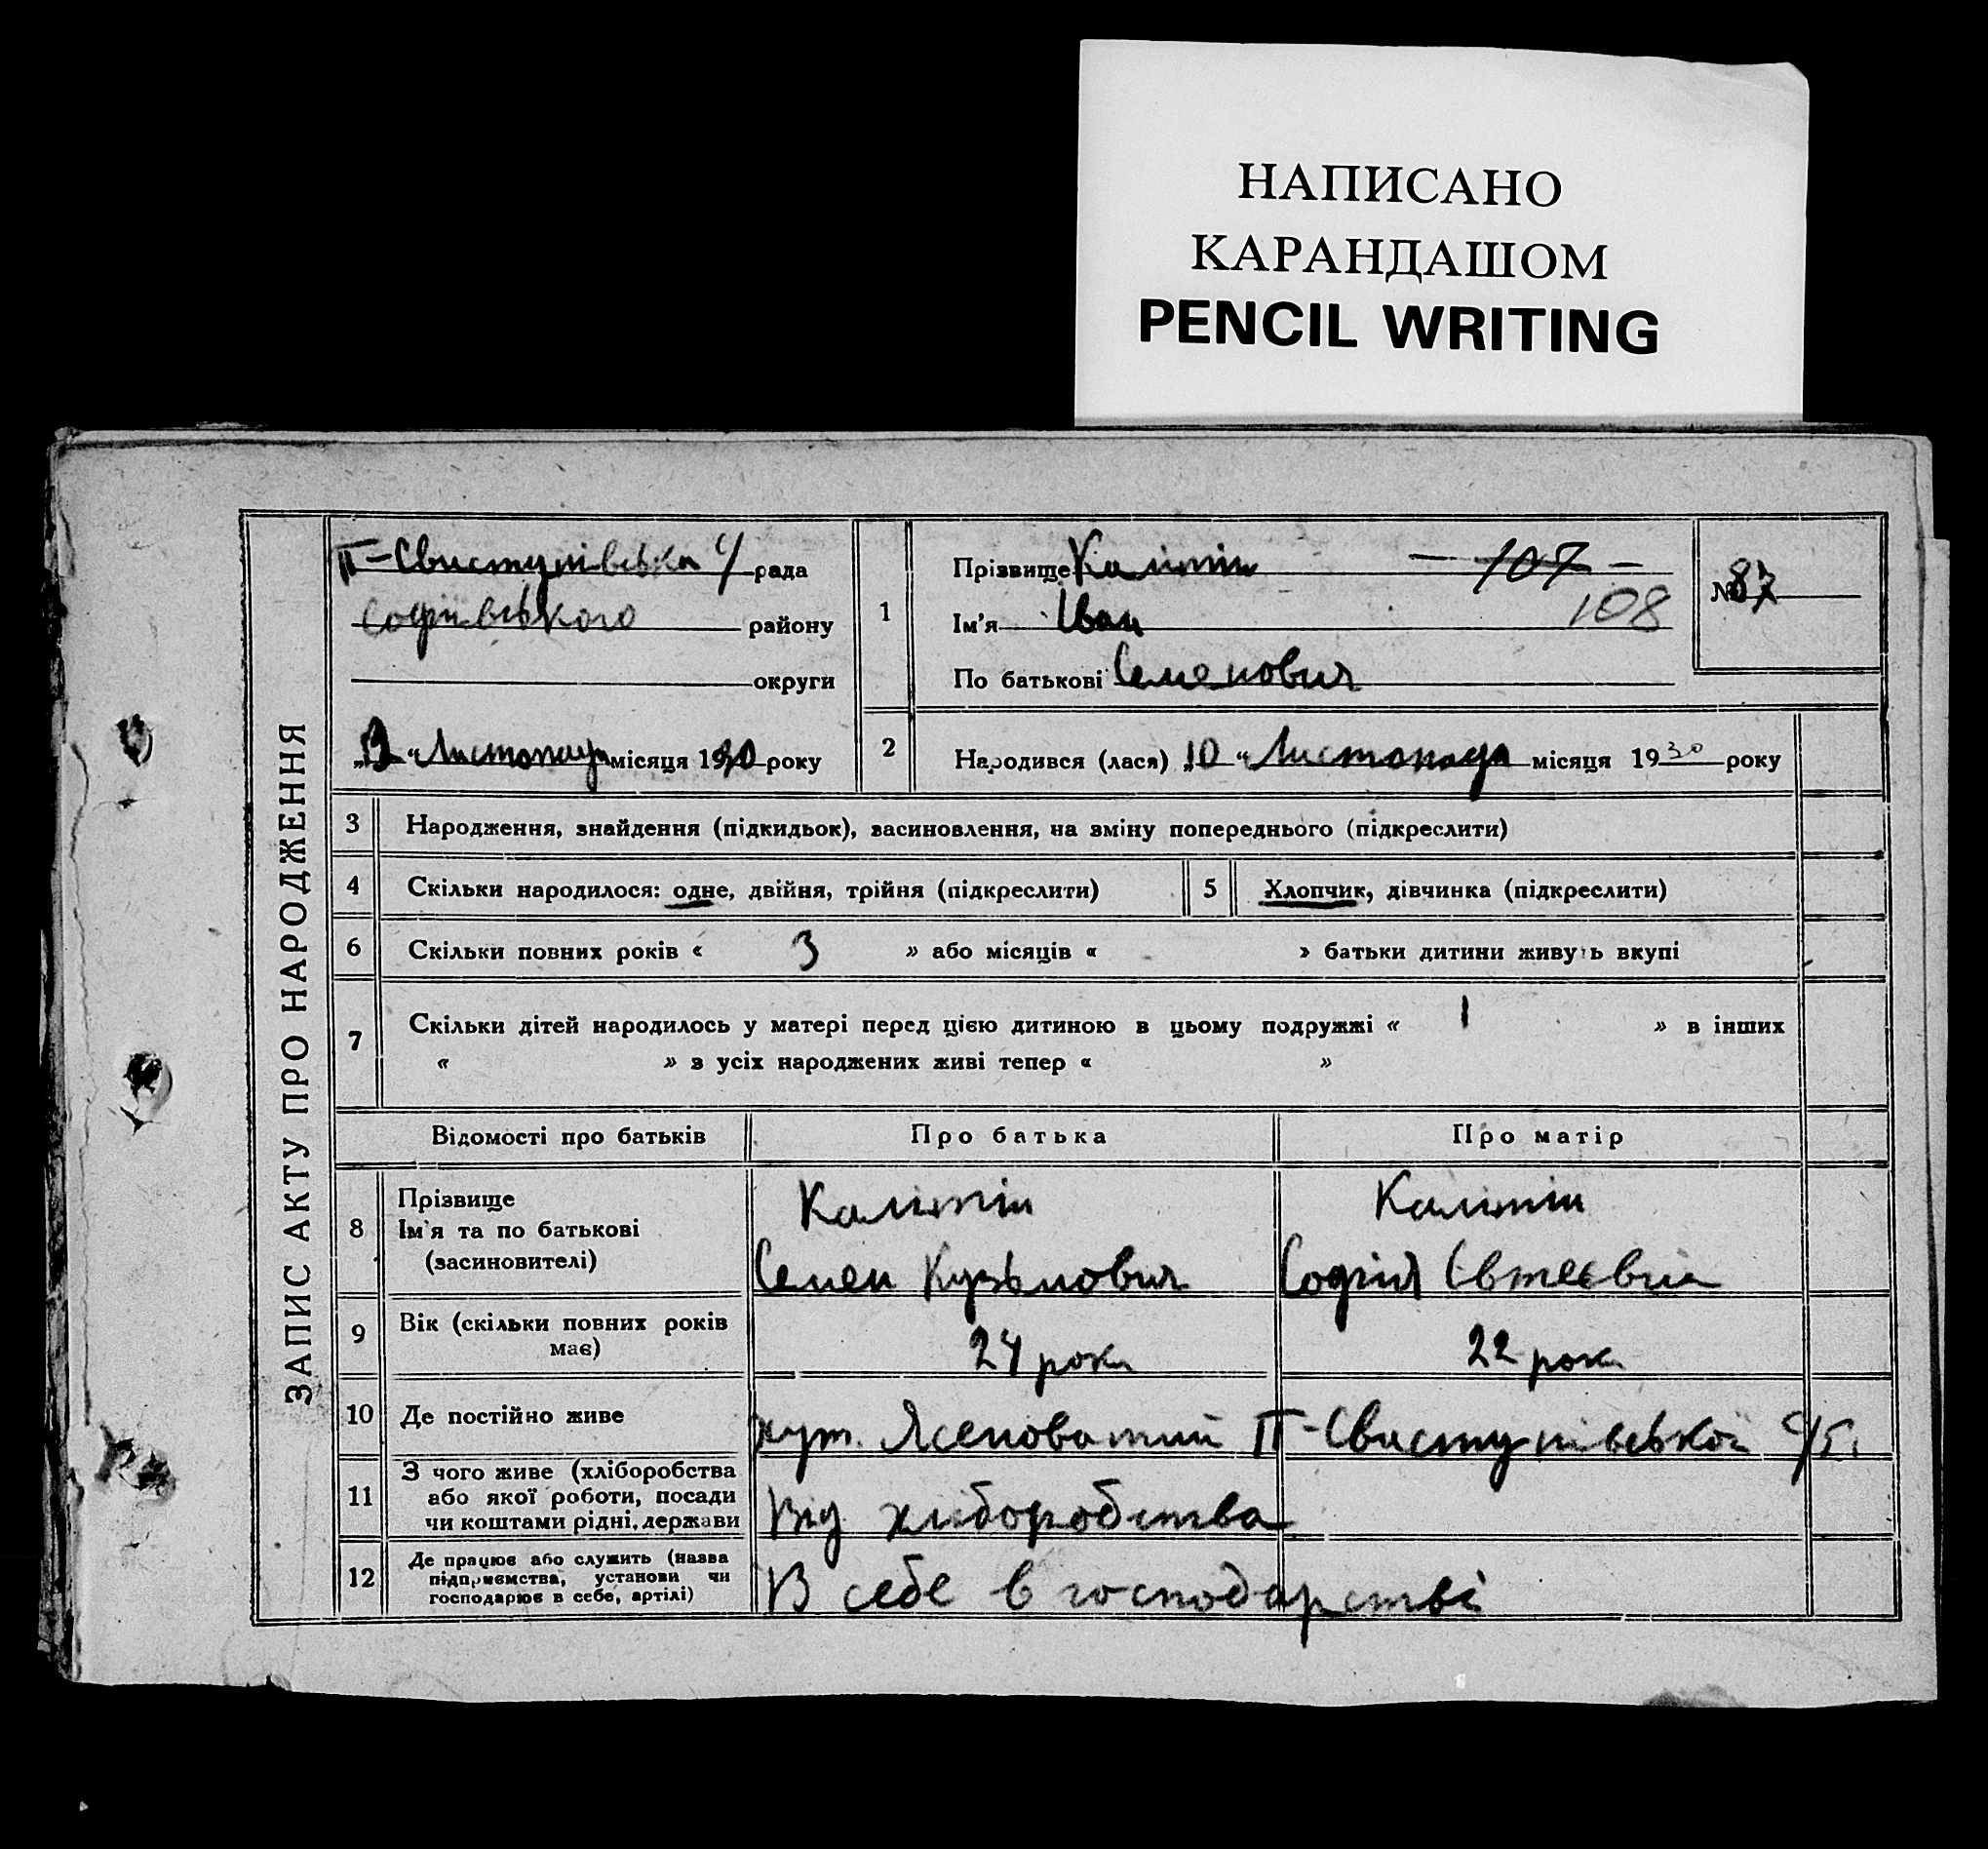 НАПИСАНО
КАРАНДАШОМ
PENCIL WRITING
ЗАПИС АКТУ ПРО НАРОДЖЕННЯ
П-Свистунівська с/рада
Софіївського району
округи
місяця 1930 року
1
Прізвище Калітін — 107 —
108
Ім'я Іван
По батькові Семенович
№ 87
„ “ Листопада місяця 1930 року
2 Народився (лася) „10 “ Листопада місяця 1930 року
3 Народження, знайдення (підкидьок), засиновлення, на зміну попереднього (підкреслити)
4 Скільки народилося: одне, двійня, трійня (підкреслити) 5 Хлопчик, дівчинка (підкреслити)
6 Скільки повних років « 3 » або місяців « » батьки дитини живуть вкупі
7 Скільки дітей народилось у матері перед цією дитиною в цьому подружжі « 1 » в інших
« » з усіх народжених живі тепер « »
Відомості про батьків Про батька Про матір
8 Прізвище Калітін Калітін
Ім'я та по батькові
(засиновителі) Семен Кузьмович Софія Євтеєвна
9 Вік (скільки повних років
має) 24 рок. 22 рок.
10 Де постійно живе хут. Ясеноватий П-Свистунівської с/р.
11 З чого живе (хліборобства
або якої роботи, посади
чи коштами рідні, держави Від хліборобства
12 Де працює або служить (назва
підприємства, установи чи
господарює в себе, артілі) В себе в господарстві